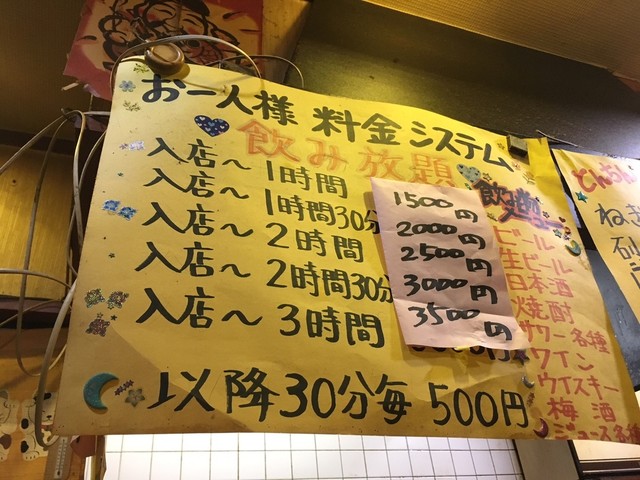 お一人様 料金システム
飲み放題
入店〜1時間 1500円
入店〜1時間30分 2000円
入店〜2時間 2500円
入店〜2時間30分 3000円
入店〜3時間 3500円
以降30分毎 500円
ビール
生ビール
日本酒
焼酎
サワー各種
ワイン
ウイスキー
梅酒
ジュース各種